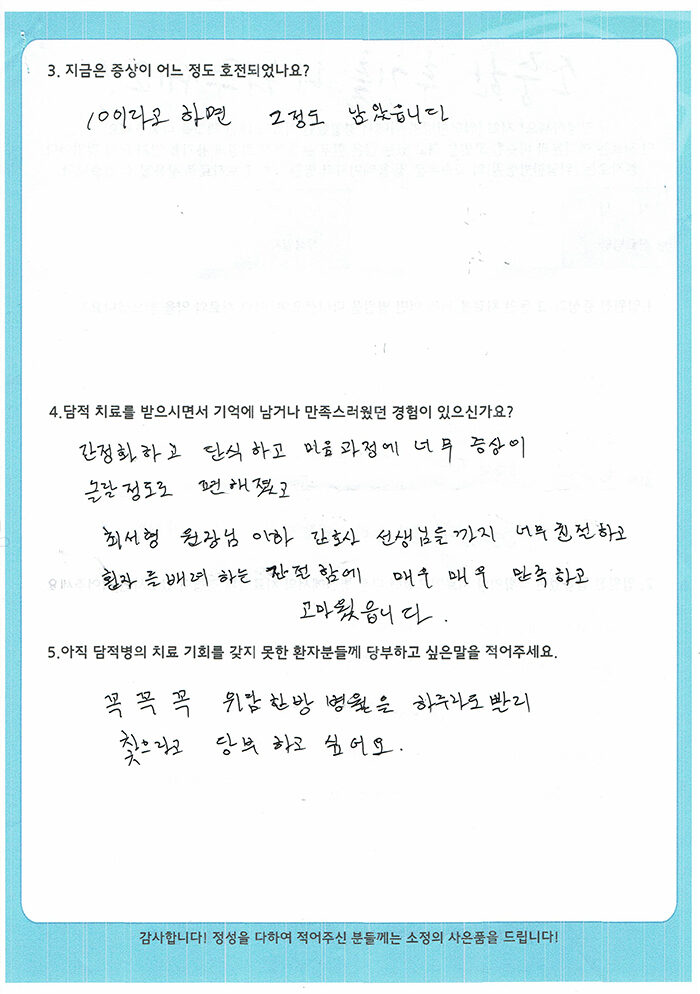 3. 지금은 증상이 어느 정도 호전되었나요?
10이라고 하면 2정도 남았읍니다
4.담적 치료를 받으시면서 기억에 남거나 만족스러웠던 경험이 있으신가요?
간정화하고 단식하고 미음과정에 너무 증상이
놀랄정도로 편해졌고
최서형 원장님 이하 간호사 선생님들까지 너무친절하고
환자를배려하는 친절함에 매우 매우 만족하고
고마웠읍니다.
5.아직 담적병의 치료 기회를 갖지 못한 환자분들께 당부하고 싶은말을 적어주세요.
꼭 꼭 꼭 위담한방병원을 하루라도빨리
찾으라고 당부하고 싶어요.
감사합니다! 정성을 다하여 적어주신 분들께는 소정의 사은품을 드립니다!